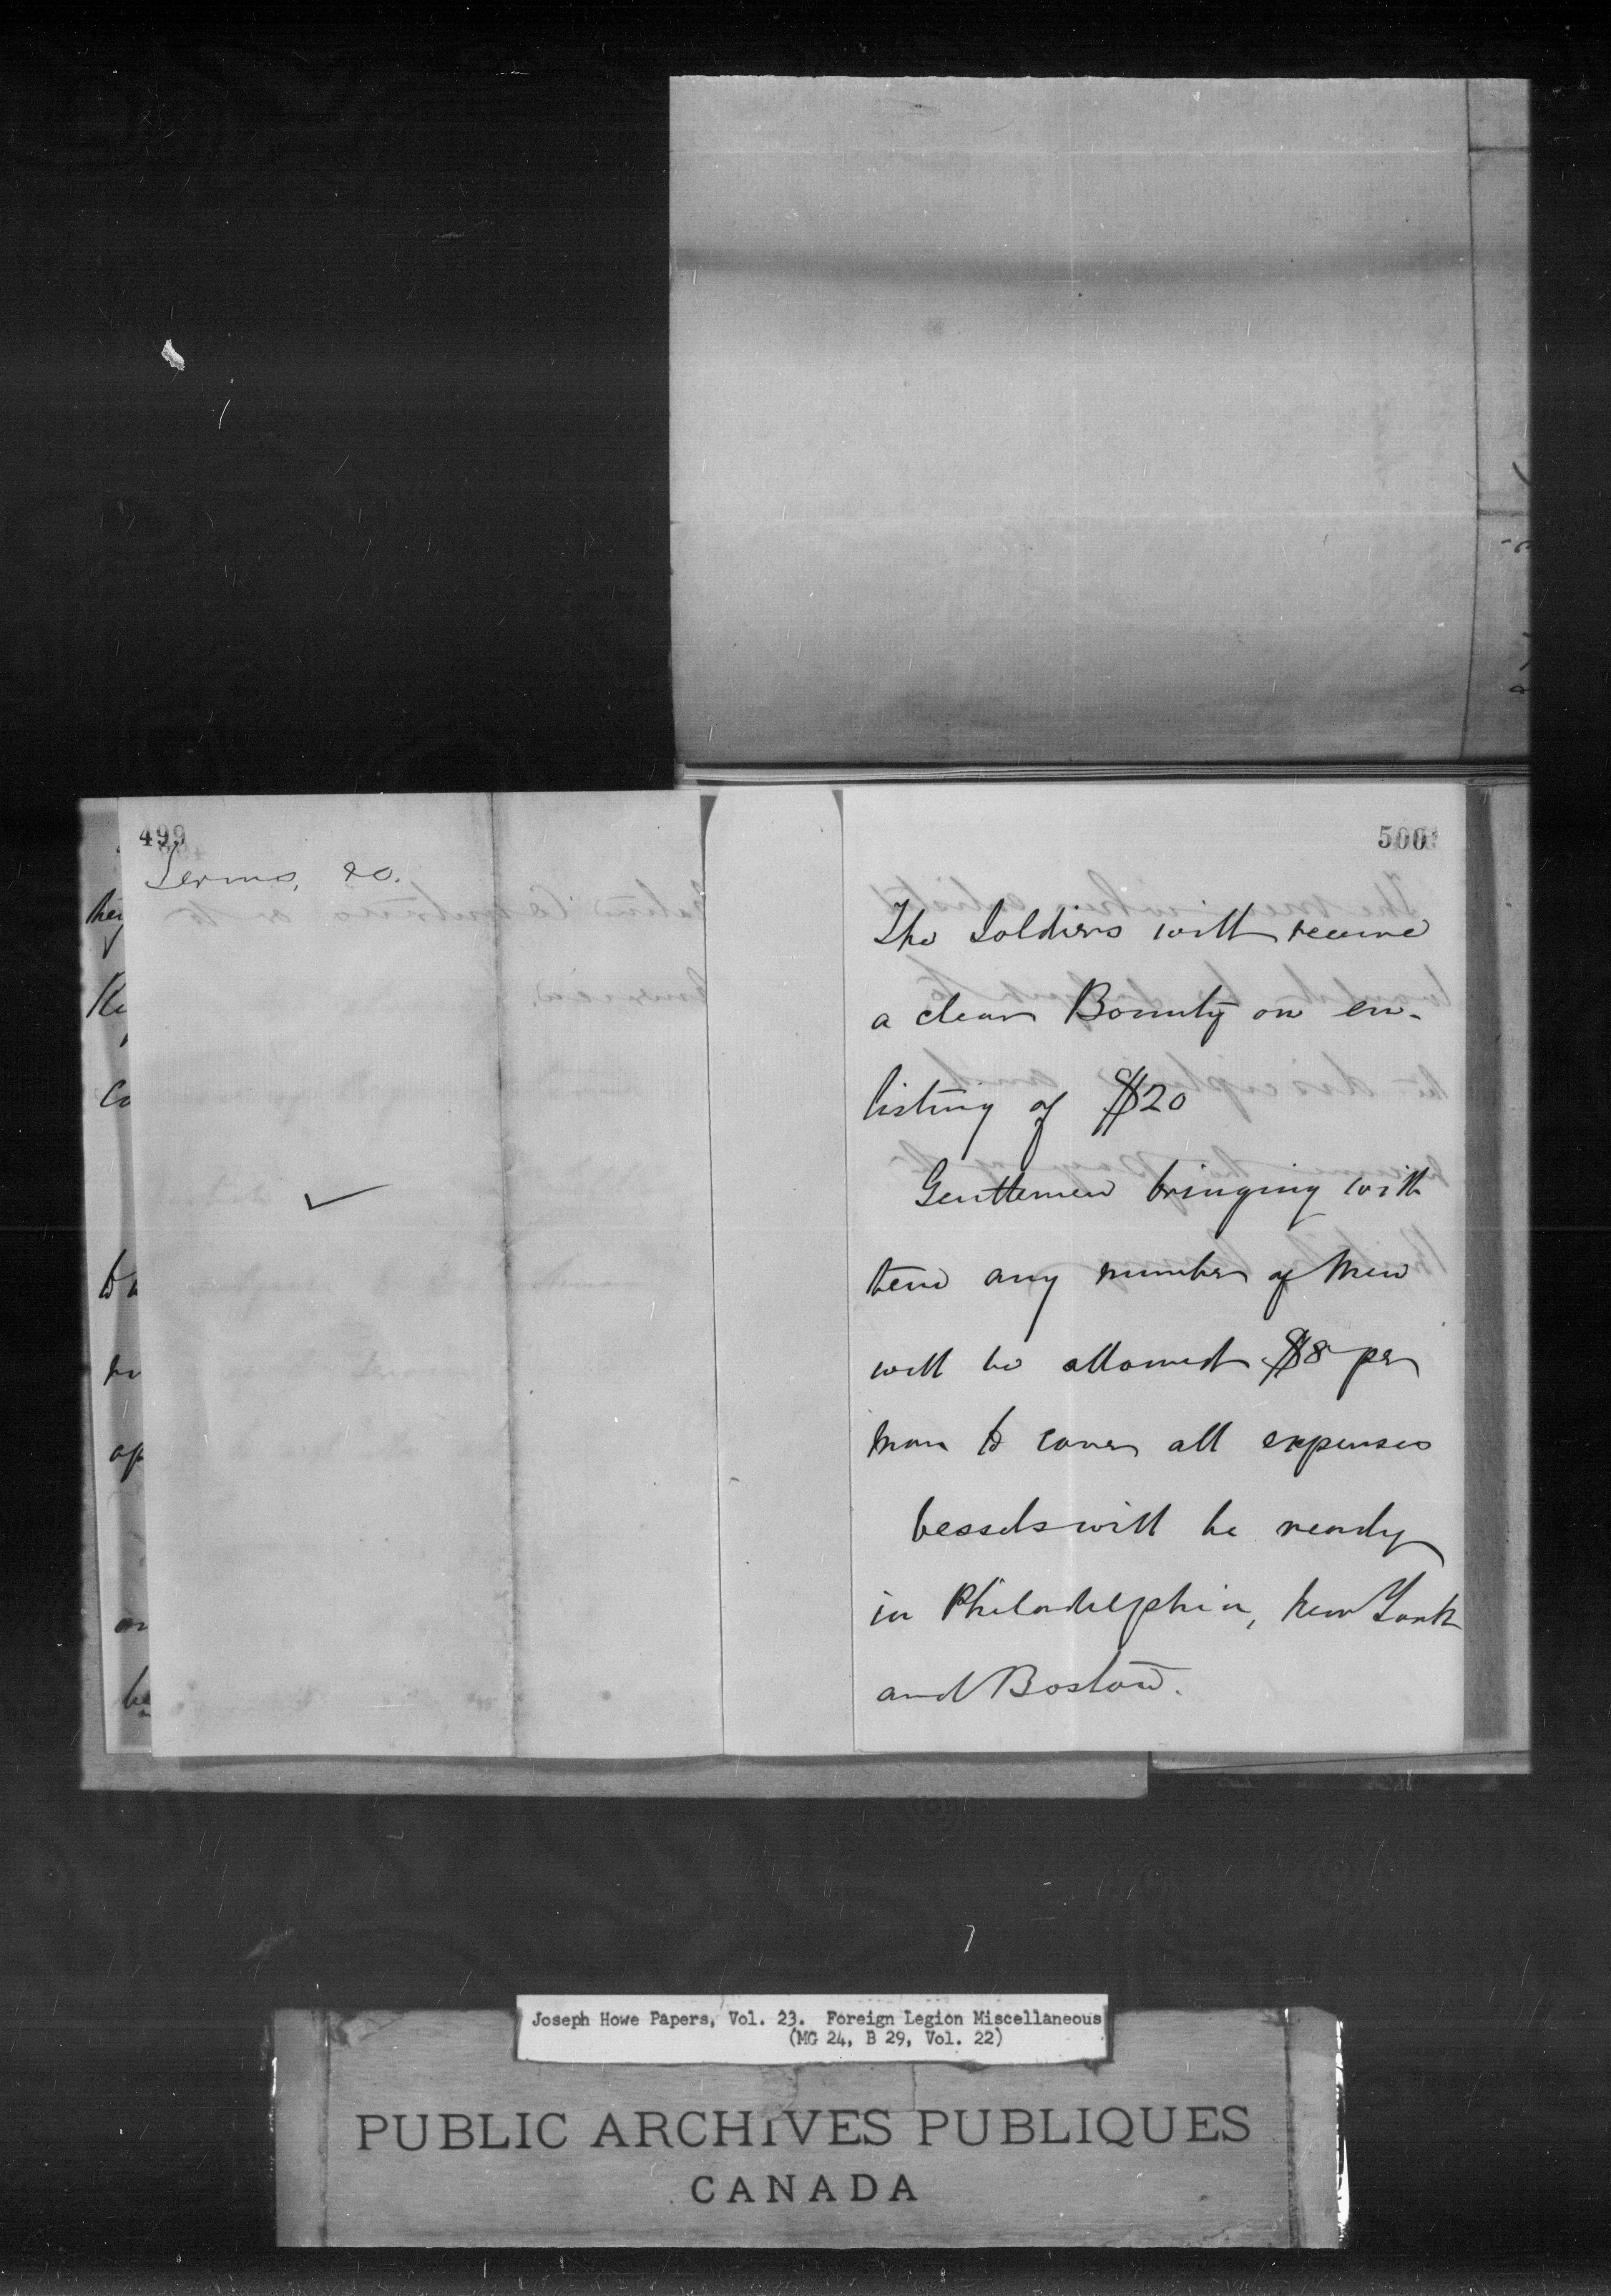 499
Terms, &c.
500
The Soldiers will receive
a clear Bounty on en-
listing of $20
Gentlemen bringing with
them any number of Men
will be allowed $8 per
man to cover all expenses
Vessels will be ready
in Philadelphia, New York
and Boston.
Joseph Howe Papers, Vol. 23. Foreign Legion Miscellaneous
(MG 24, B 29, Vol. 22)
PUBLIC ARCHIVES PUBLIQUES
CANADA